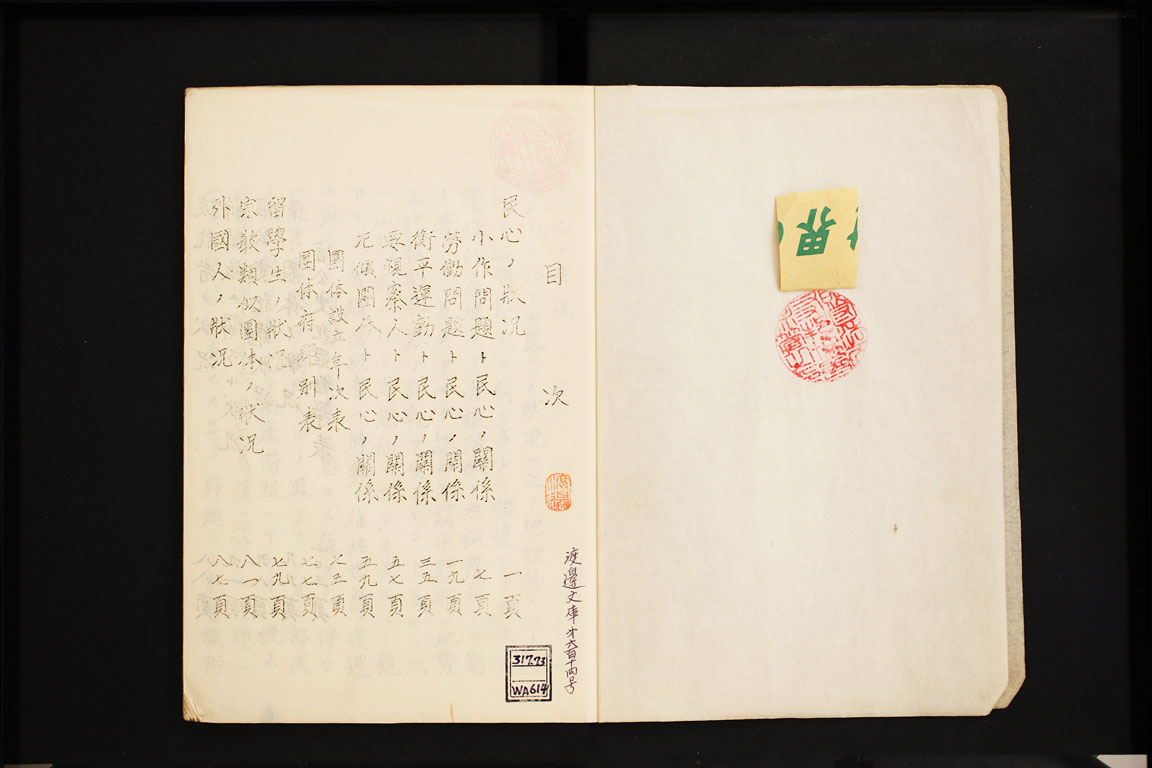 界
目次
民心ノ狀況 一頁
小作問題ト民心ノ關係 七頁
勞働問題ト民心ノ關係 一九頁
衡平運動ト民心ノ關係 三五頁
要視察人ト民心ノ關係 五七頁
民心ノ關係 五九頁
團体設立年次表 七五頁
團体府 別表 七七頁
留學生ノ狀況 七九頁
宗敎類似團体ノ狀況 八一頁
外國人ノ狀況 八七頁
渡邊文庫才六百十四号
317.73
WA614